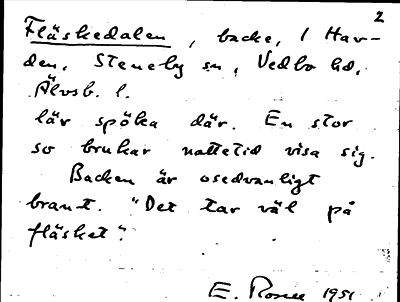 2
Fläskedalen, backe, i Hav-
den, Steneby sn, Vedbo hd,
Älvsb. l.
lär spöka där. En stor
so brukar nattetid visa sig.
Backen är osedvanligt
brant. "Det tar väl på
fläsket".
E. Rosell 1951